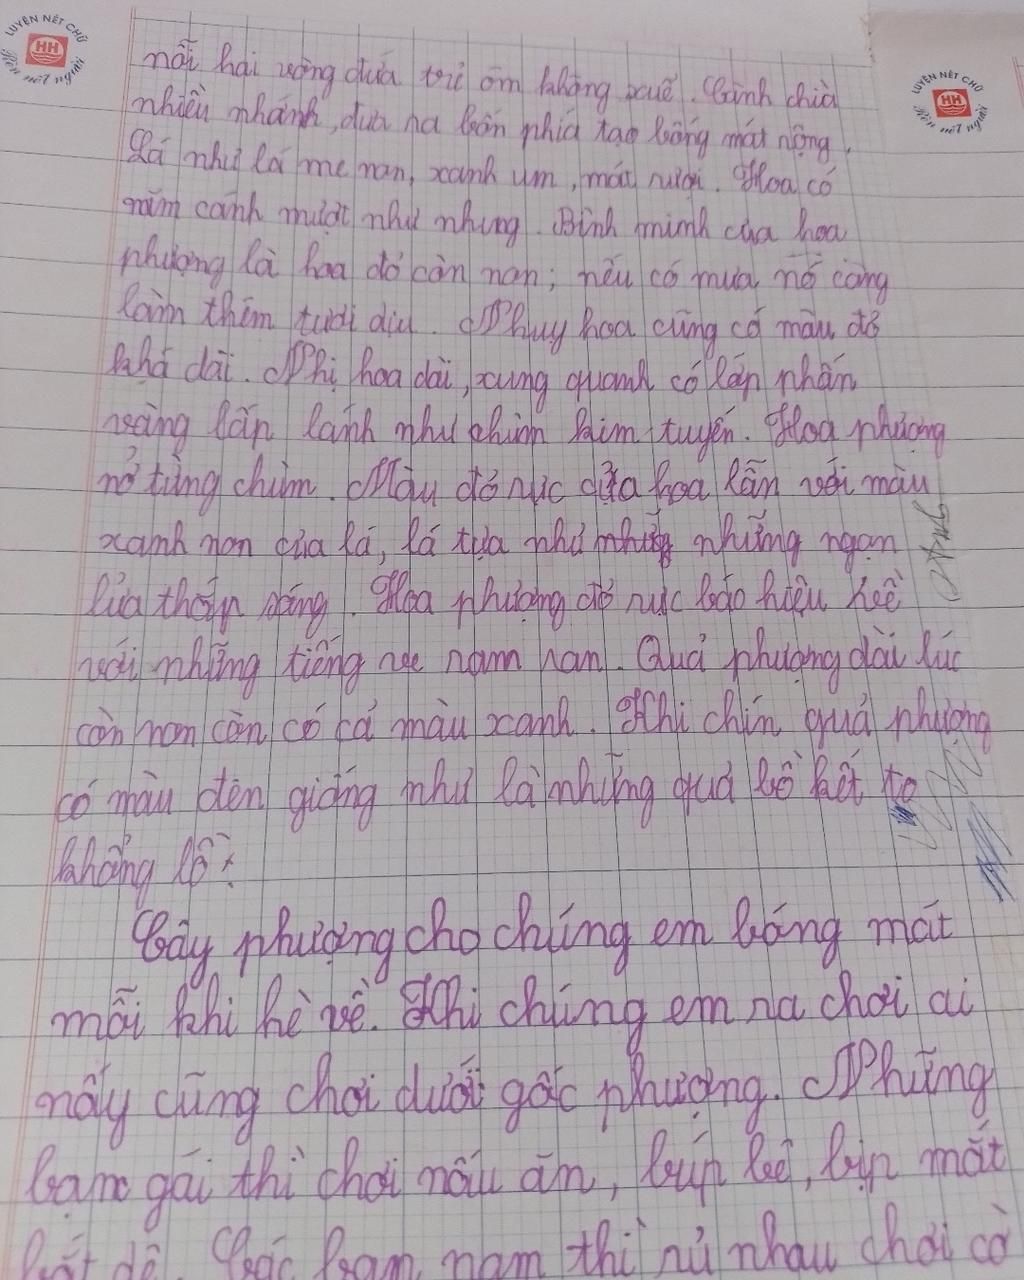 LUYỆN NÉT CHỮ
HH
Rèn nết người
LUYỆN NÉT CHỮ
HH
Rèn nết người
nỗi hai vòng đứa trẻ ôm không xuể. Cành chìa
nhiều nhánh, đưa ra bốn phía tạo bóng mát rộng.
Lá như lá me non, xanh um, mát rượi. Hoa có
năm cánh mượt như nhung. Bình minh của hoa
phượng là hoa đỏ còn non; nếu có mưa nó càng
làm thêm tươi dịu. Nhuy hoa cũng có màu đỏ
khá dài. Nhị hoa dài, xung quanh có lớp phấn
vàng lấp lánh như chùm kim tuyến. Hoa phượng
nở từng chùm. Màu đỏ rực của hoa lẫn với màu
xanh non của lá, lá tựa như những ngọn
lửa thắp sáng. Hoa phượng đỏ rực báo hiệu hè
với những tiếng ve ram ran. Quả phượng dài lúc
còn non còn có cả màu xanh. Khi chín quả phượng
có màu đen giống như là những quả bồ kết to
khổng lồ.
Cây phượng cho chúng em bóng mát
mỗi khi hè về. Khi chúng em ra chơi ai
nấy cũng chơi dưới gốc phượng. Những
bạn gái thì chơi nấu ăn, búp bê, bịp mắt
bắt dê. Các bạn nam thì rủ nhau chơi cờ